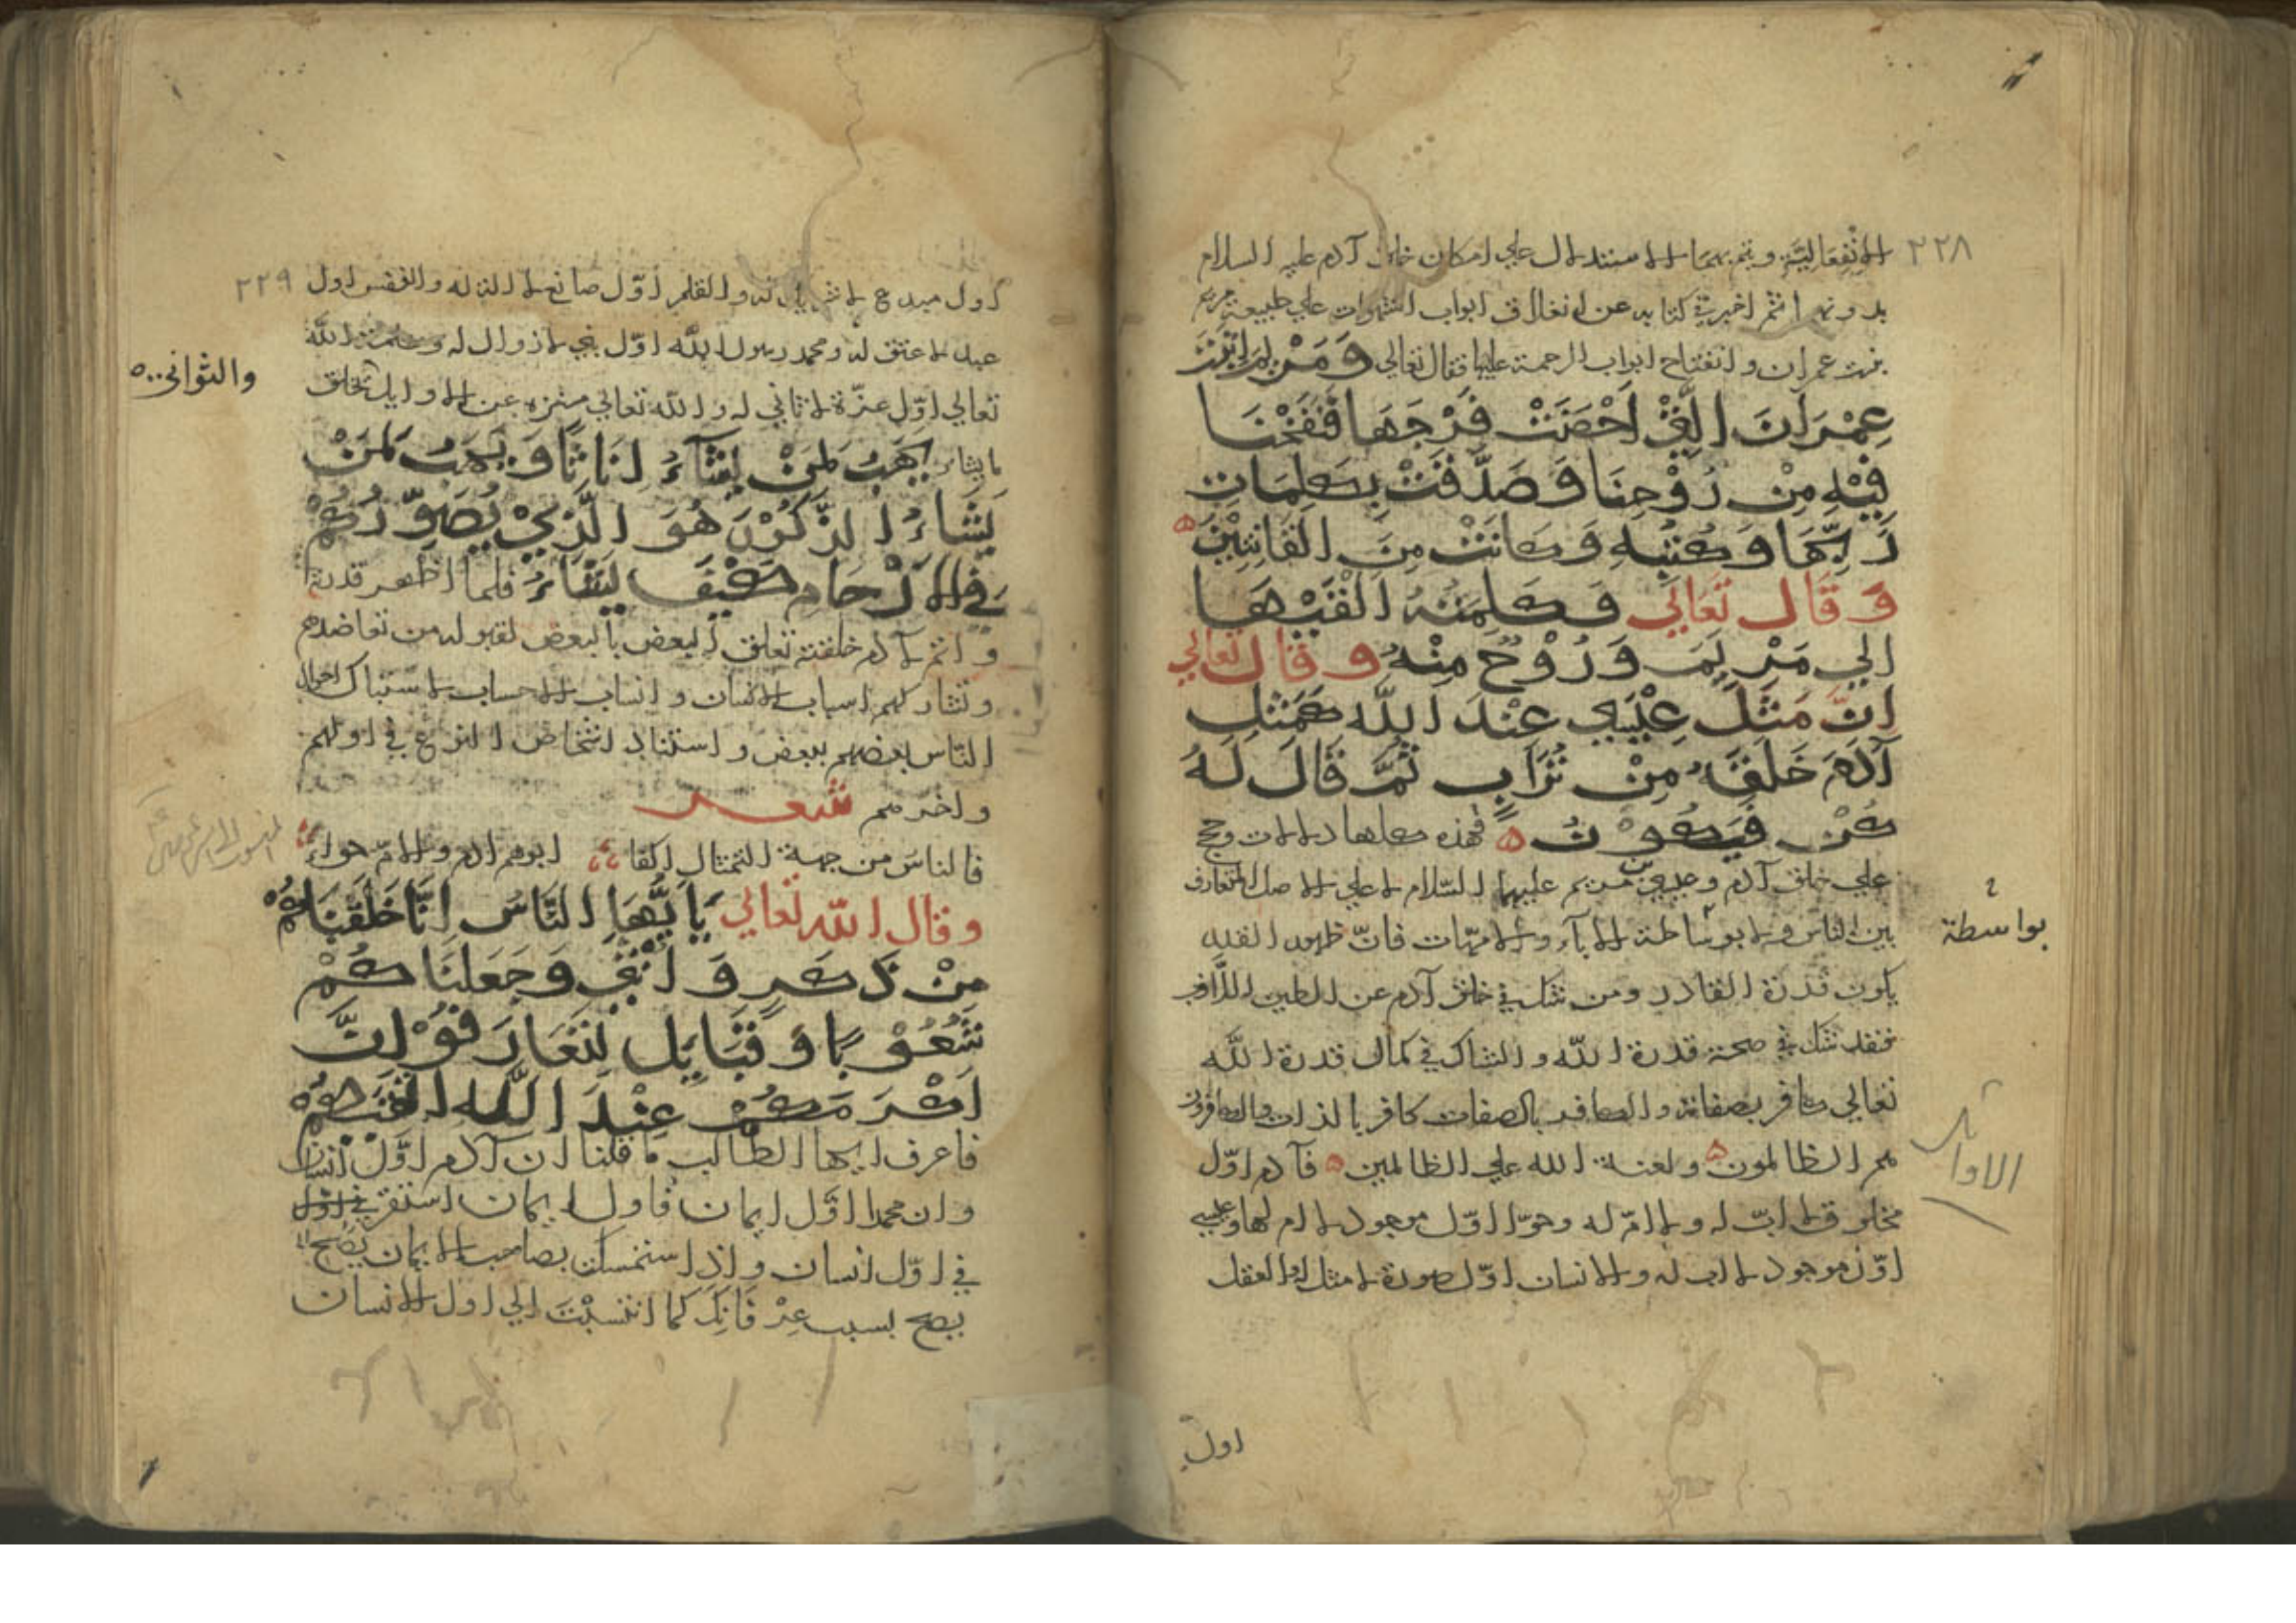 ٢٢٨
الانفعالية ويتم بهما الاستدلال علي امكان خلق آدم عليه السلام
بدونهم انتم اخبر في كتابه عن انغلاق ابواب الشهوات علي طبيعة مريم
بنت عمران وانفتاح ابواب الرحمة عليها فقال تعالي وَمَرْيَمَ ابْنَتَ
عِمْرَانَ الَّتِيْ اَحْصَنَتْ فَرْجَهَا فَنَفَخْنَا
فِيْهِ مِنْ رُوْحِنَا وَصَدَّقَتْ بِكَلِمَاتِ
رَبِّهَا وَكُتُبِهِ وَكَانَتْ مِنَ القَانِتِيْنَ ۵
وَقَال تَعَالَي وَكَلِمَتُهُ اَلْقَيْهَا
الي مَرْيَمَ وَرُوْحٌ مِنْهُ وقال تعالي
انَّ مَثَلَ عِيْسَي عِنْدَ اللّٰه كَمَثَلِ
آدَمَ خَلَقَهُ مِنْ تُرَابٍ ثُمَّ قَالَ لَهُ
كُنْ فَيَكُوْنُ ۵ فهذه كلها دلالات وحجج
علي خلق آدم وعيسي بن مريم عليهما السّلام لا علي الاصل المتعارف
بين الناس ولا بوساطة الاباء والامهات فانّ ظهور القدر
يكون قدرة القادر ومن شك في خلق آدم عن الطين اللازب
فقد شك في صحة قدرة اللّه والشاك في كمال قدرة اللّه
تعالي كافر بصفاته والكافر بالصفات كافر بالذات والكافرون
هم الظالمون ۵ ولعنة الله علي الظالمين ۵ فآدم اوّل
مخلوق لا ابّ له ولا امّ له وحوّا اوّل موجود لا ام لها وعيسي
اوّل موجود لا اب له والانسان اوّل صورة لا مثل لها والعقل
بواسطة
الاوايل
اول
٢٢٩
اول مبدع لا شريك له والقلم اوّل صانع لا الة له والنفس اول
عبد لا عتق له ومحمد رسول اللّه اوّل نبي لا زوال له وكلمة اللّه
تعالي اوّل عزّة لا ثاني له واللّه تعالي منزه عن الاوايل يخلق
والثواني
ما يشاء يَهَبُ لِمَنْ يَشَآءُ اِنَاثًا وَيَهَبُ لِمَنْ
يَشَاءُ الذُّكُوْرَ هُوَ الَّذِيْ يُصَوِّرُكُمْ
فِي الاَرْحَامِ كَيْفَ يَشَاءُ فلما اظهر قدرة
وانتم لآدم خلقته تعلق البعض بالبعض لقبوله من تعاضدهم
وتشاركهم اسباب الانسان وانساب الاحساب لاستباك احوال
الناس بعضهم ببعض واستناد اشخاص النوع في اولهم
واخرهم شعر
فالناس من جهة التمثال اكفاء ابوهم ادم والامّ حواء
وقال اللّه تعالي يَا اَيُّهَا النَّاسُ اِنَّا خَلَقْنَاكُمْ
مِنْ ذَكَرٍ وَاُنْثَي وَجَعَلْنَاكُمْ
شُعُوْبًا وَقَبَايِلَ لِتَعَارَفُوْا اِنَّ
اَكْرَمَكُمْ عِنْدَ اللّٰه اَتْقَيكُمْ
فاعرف ايها الطالب ما قلنا ان آدم اوّل انسان
وان محمدا اوّل ايمان فاول ايمان استقر
في اوّل انسان واذا استمسكت بصاحب الايمان يصح
يصح بسبب عِرْفَانِكَ كما انتسبْتَ الي اول الانسان